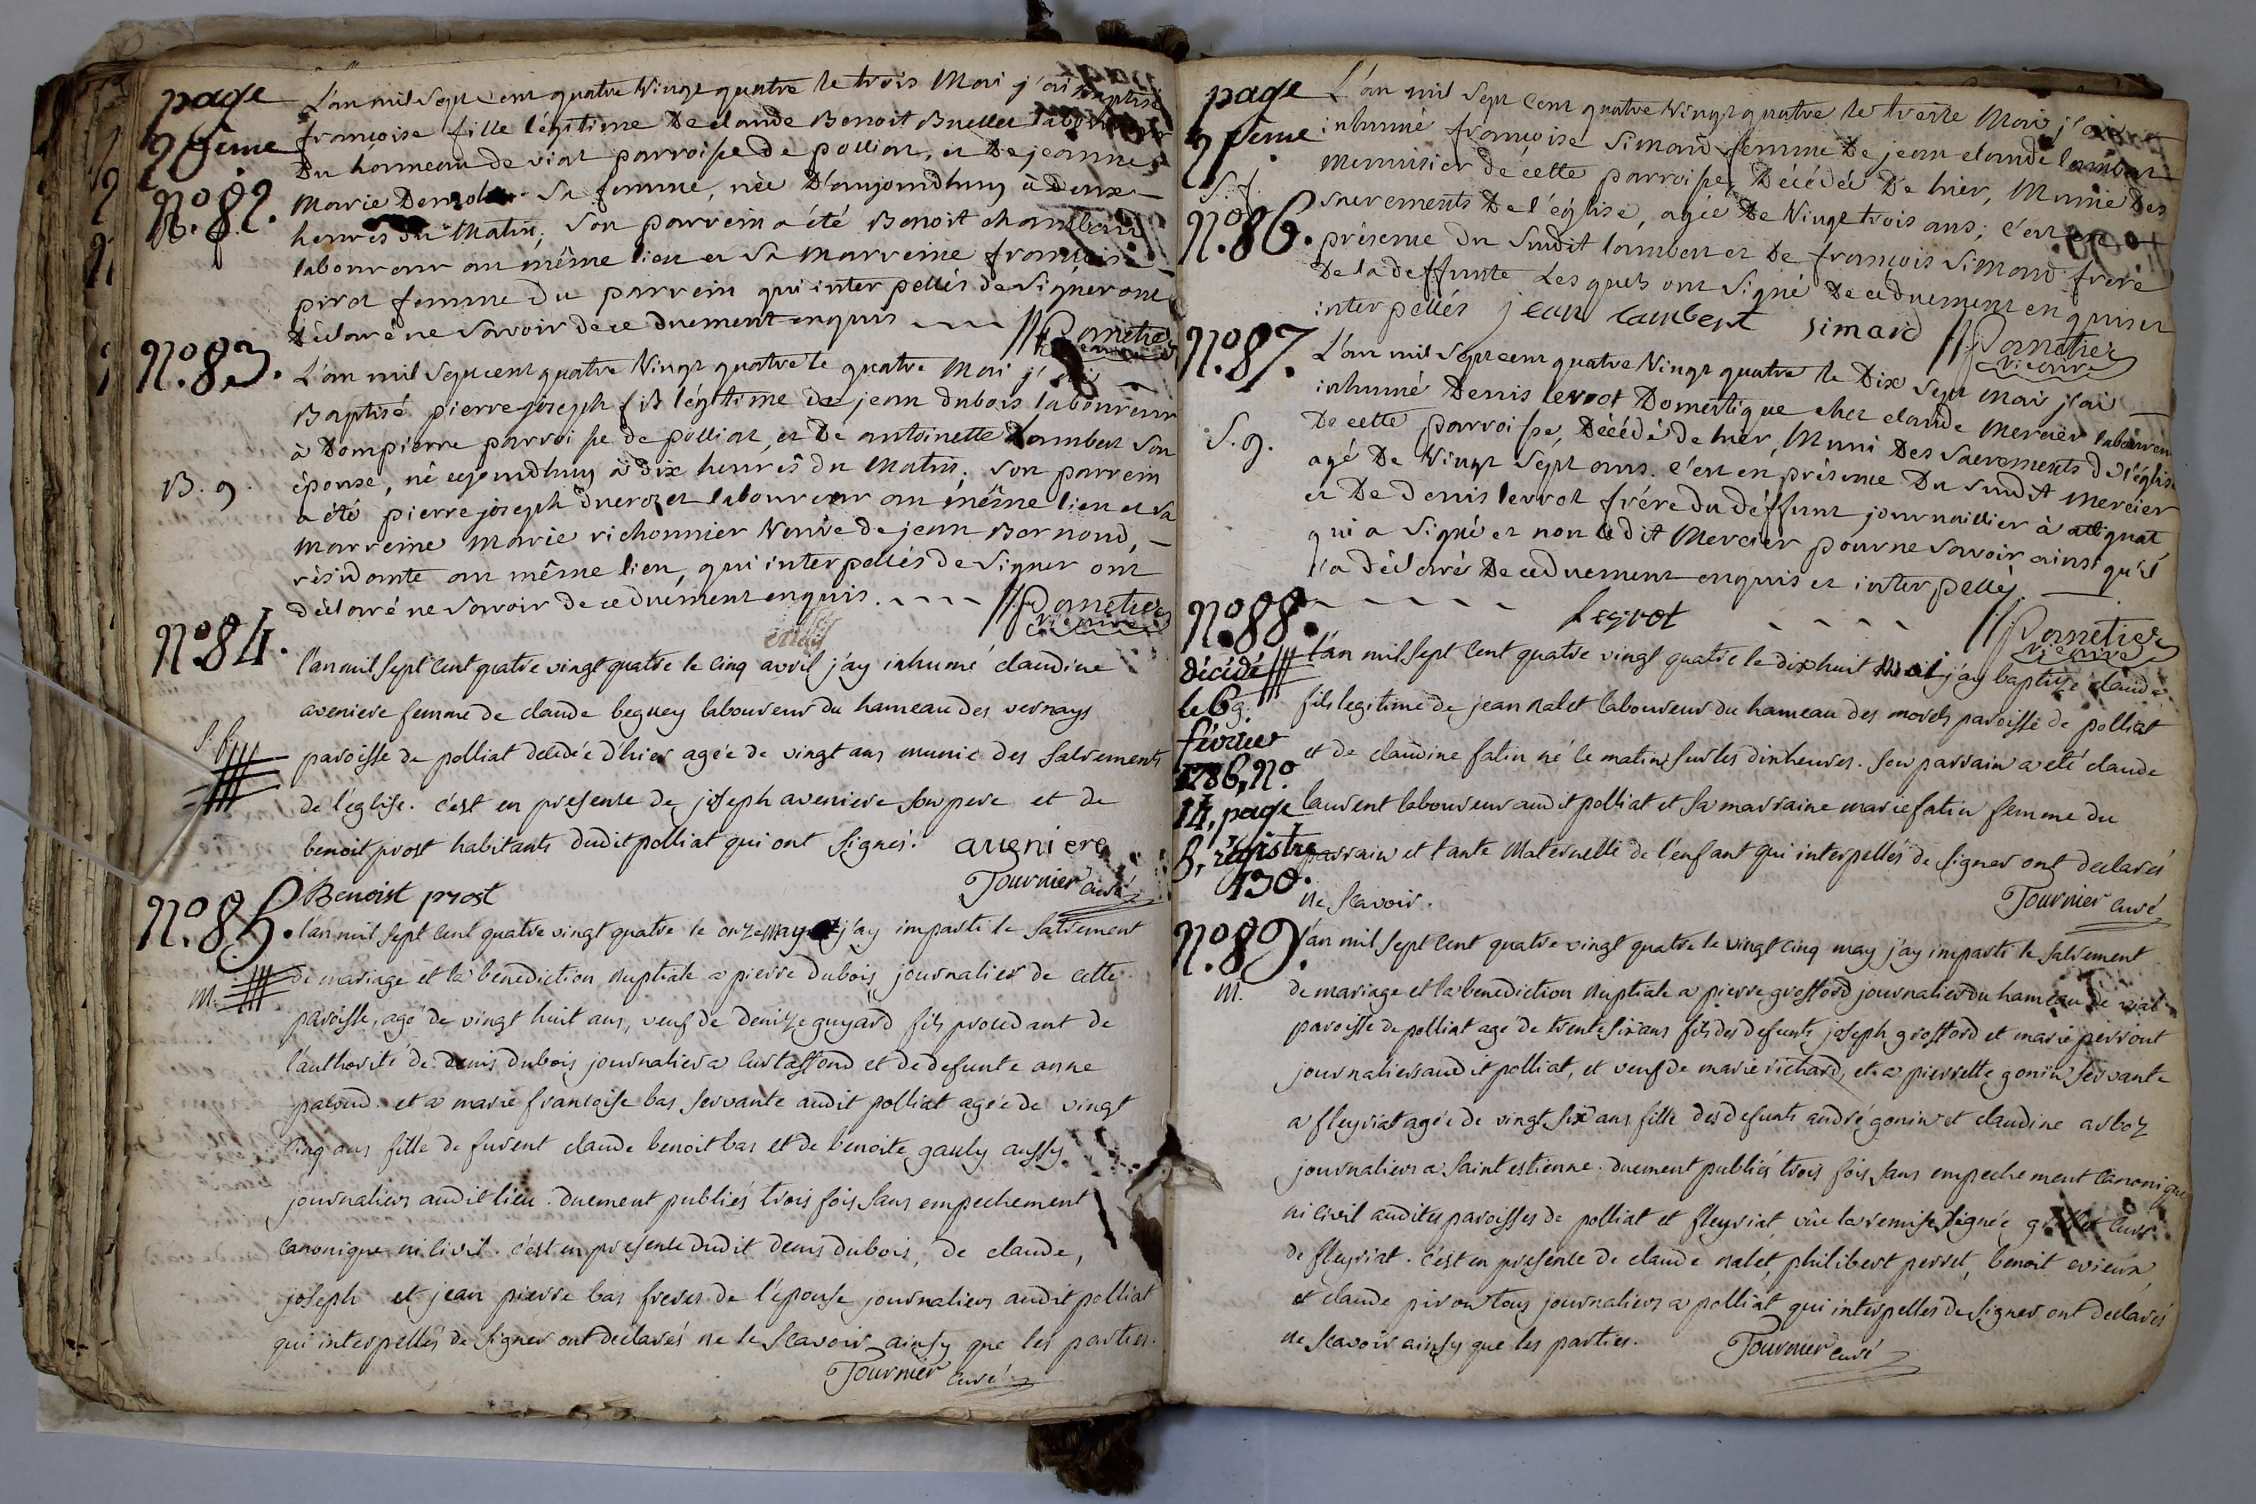 page
26eme
No. 82.
B. f.
L'an mil Sept Cent quatre Vingt quatre le trois Mai j'ai baptisé
françoise fille légitime De claude Benoit Buellet laboureur
Du hameau de viat parroisse de polliat, et De jeanne
Marie Sa femme, née D'aujourdhuy à deux
heures du Matin; Son parrein a été Benoit chambard
laboureur au même lieu et Sa Marreine françoise
pirot femme Du parrein qui interpellés de Signer ont
Déclaré ne Savoir de ce duement enquis Panetier
vicaire
No. 83.
B. g.
L'an mil Sept cent quatre Vingt quatre le quatre Mai j'ai
Baptisé pierre joseph fils légitime de jean dubois laboureur
à Dompierre parroisse de polliat, et De antoinette Lambert Son
épouse, né cejourdhuy à dix heures du Matin. Son parrein
a été pierre joseph laboureur au même lieu et Sa
Marreine Marie richonnier Veuve de jean Bornond,
résidante au même lieu, qui interpellés de Signer ont
déclaré ne Savoir de ce duement enquis. Panetier
vicaire
No. 84.
S. f.
l'an mil Sept Cent quatre vingt quatre le Cinq avril j'ay inhumé claudine
aveniere femme de claude beguey laboureur du hameau des vernays
paroisse de polliat decedée d'hier agée de vingt ans munie des Sacrements
de l'eglise. c'est en presence de joseph aveniere Son pere et de
benoit prost habitants dudit polliat qui ont Signés. aveniere
Benoist prost Tournier Curé
No. 85.
m.
l'an mil Sept Cent quatre vingt quatre le onze may j'ay imparti le Sacrement
de mariage et la benediction Nuptiale a pierre dubois journalier de cette
paroisse, agé de vingt huit ans, veuf de denise guyard fils procedant de
l'authorité de denis dubois journalier a Curtaffond et de defunte anne
paloud. et a marie francoise bas Servante audit polliat agée de vingt
Cinq ans fille de furent claude benoit bas et de benoite gauly aussy
journaliers audit lieu. duement publiés trois fois Sans empechement
Canonique ni Civil. c'est en presence dudit denis dubois, de claude,
joseph et jean pierre bas freres de l'épouse journaliers audit polliat
qui interpellés de Signer ont declarés ne le Scavoir ainsy que les parties.
Tournier Curé
page
27eme
S. f.
No. 86.
L'an mil Sept Cent quatre Vingt quatre le treize Mai j'ai
inhumé françoise Simard femme De jean claude lambert
Menuisier de cette parroisse, Décédée De hier, Munie Des
Sacrements De l'église, agée De Vingt trois ans; c'est en
présence du Susdit lambert et De françois Simard frere
De la deffunte Lesquels ont Signé De ce duement enquis et
interpellés jean lambert simard Panetier
vicaire
No. 87.
S. g.
L'an mil Sept cent quatre Vingt quatre le Dix Sept Mai j'ai
inhumé Denis levrot Domestique chez claude Mercier laboureur
De cette parroisse, Décédé de hier, Muni Des Sacrements De l'église
agé De Vingt Sept ans. c'est en présence Du Susdit Mercier
et De denis levrot frére du déffunt journaillier à attignat,
qui a Signé et non ledit Mercier pour ne Savoir ainsi qu'il
l'a déclaré De ce duement enquis et interpellé.
Levrot Panetier
vicaire
No. 88.
décédé
le 6
g.
février
1786, No.
14, page
5, régistre
130.
l'an mil Sept Cent quatre vingt quatre le dix huit mai j'ay baptizé claude
fils legitime de jean Nalet laboureur du hameau des morels paroisse de polliat
et de claudine falin né le matin Sur les dix heures. Son parrain a eté claude
laurent laboureur audit polliat et Sa marraine marie falin femme du
parrain et tante Maternelle de l'enfant qui interpellés de Signer ont declarés
Ne Scavoir. Tournier Curé
No. 89.
m.
l'an mil Sept Cent quatre vingt quatre le vingt Cinq may j'ay imparti le Sacrement
de mariage et la benediction Nuptiale a pierre grofford journalier du hameau de viat
paroisse de polliat agé de trente Six ans fils des defunts joseph grofford et marie perront
journaliers audit polliat, et veuf de marie richard, et a pierrette gonin Servante
a fleyriat agée de vingt Six ans fille des defunts andré gonin et claudine arboz
journaliers a Saint estienne. duement publiés trois fois Sans empechement Canonique
ni Civil audites paroisses de polliat et fleyriat, vüe la remise Signée Curé
de fleyriat. c'est en presence de claude nalet, philibert perret, benoit
et claude piron tous journaliers a polliat qui interpellés de Signer ont declarés
ne Scavoir ainsy que les parties. Tournier Curé